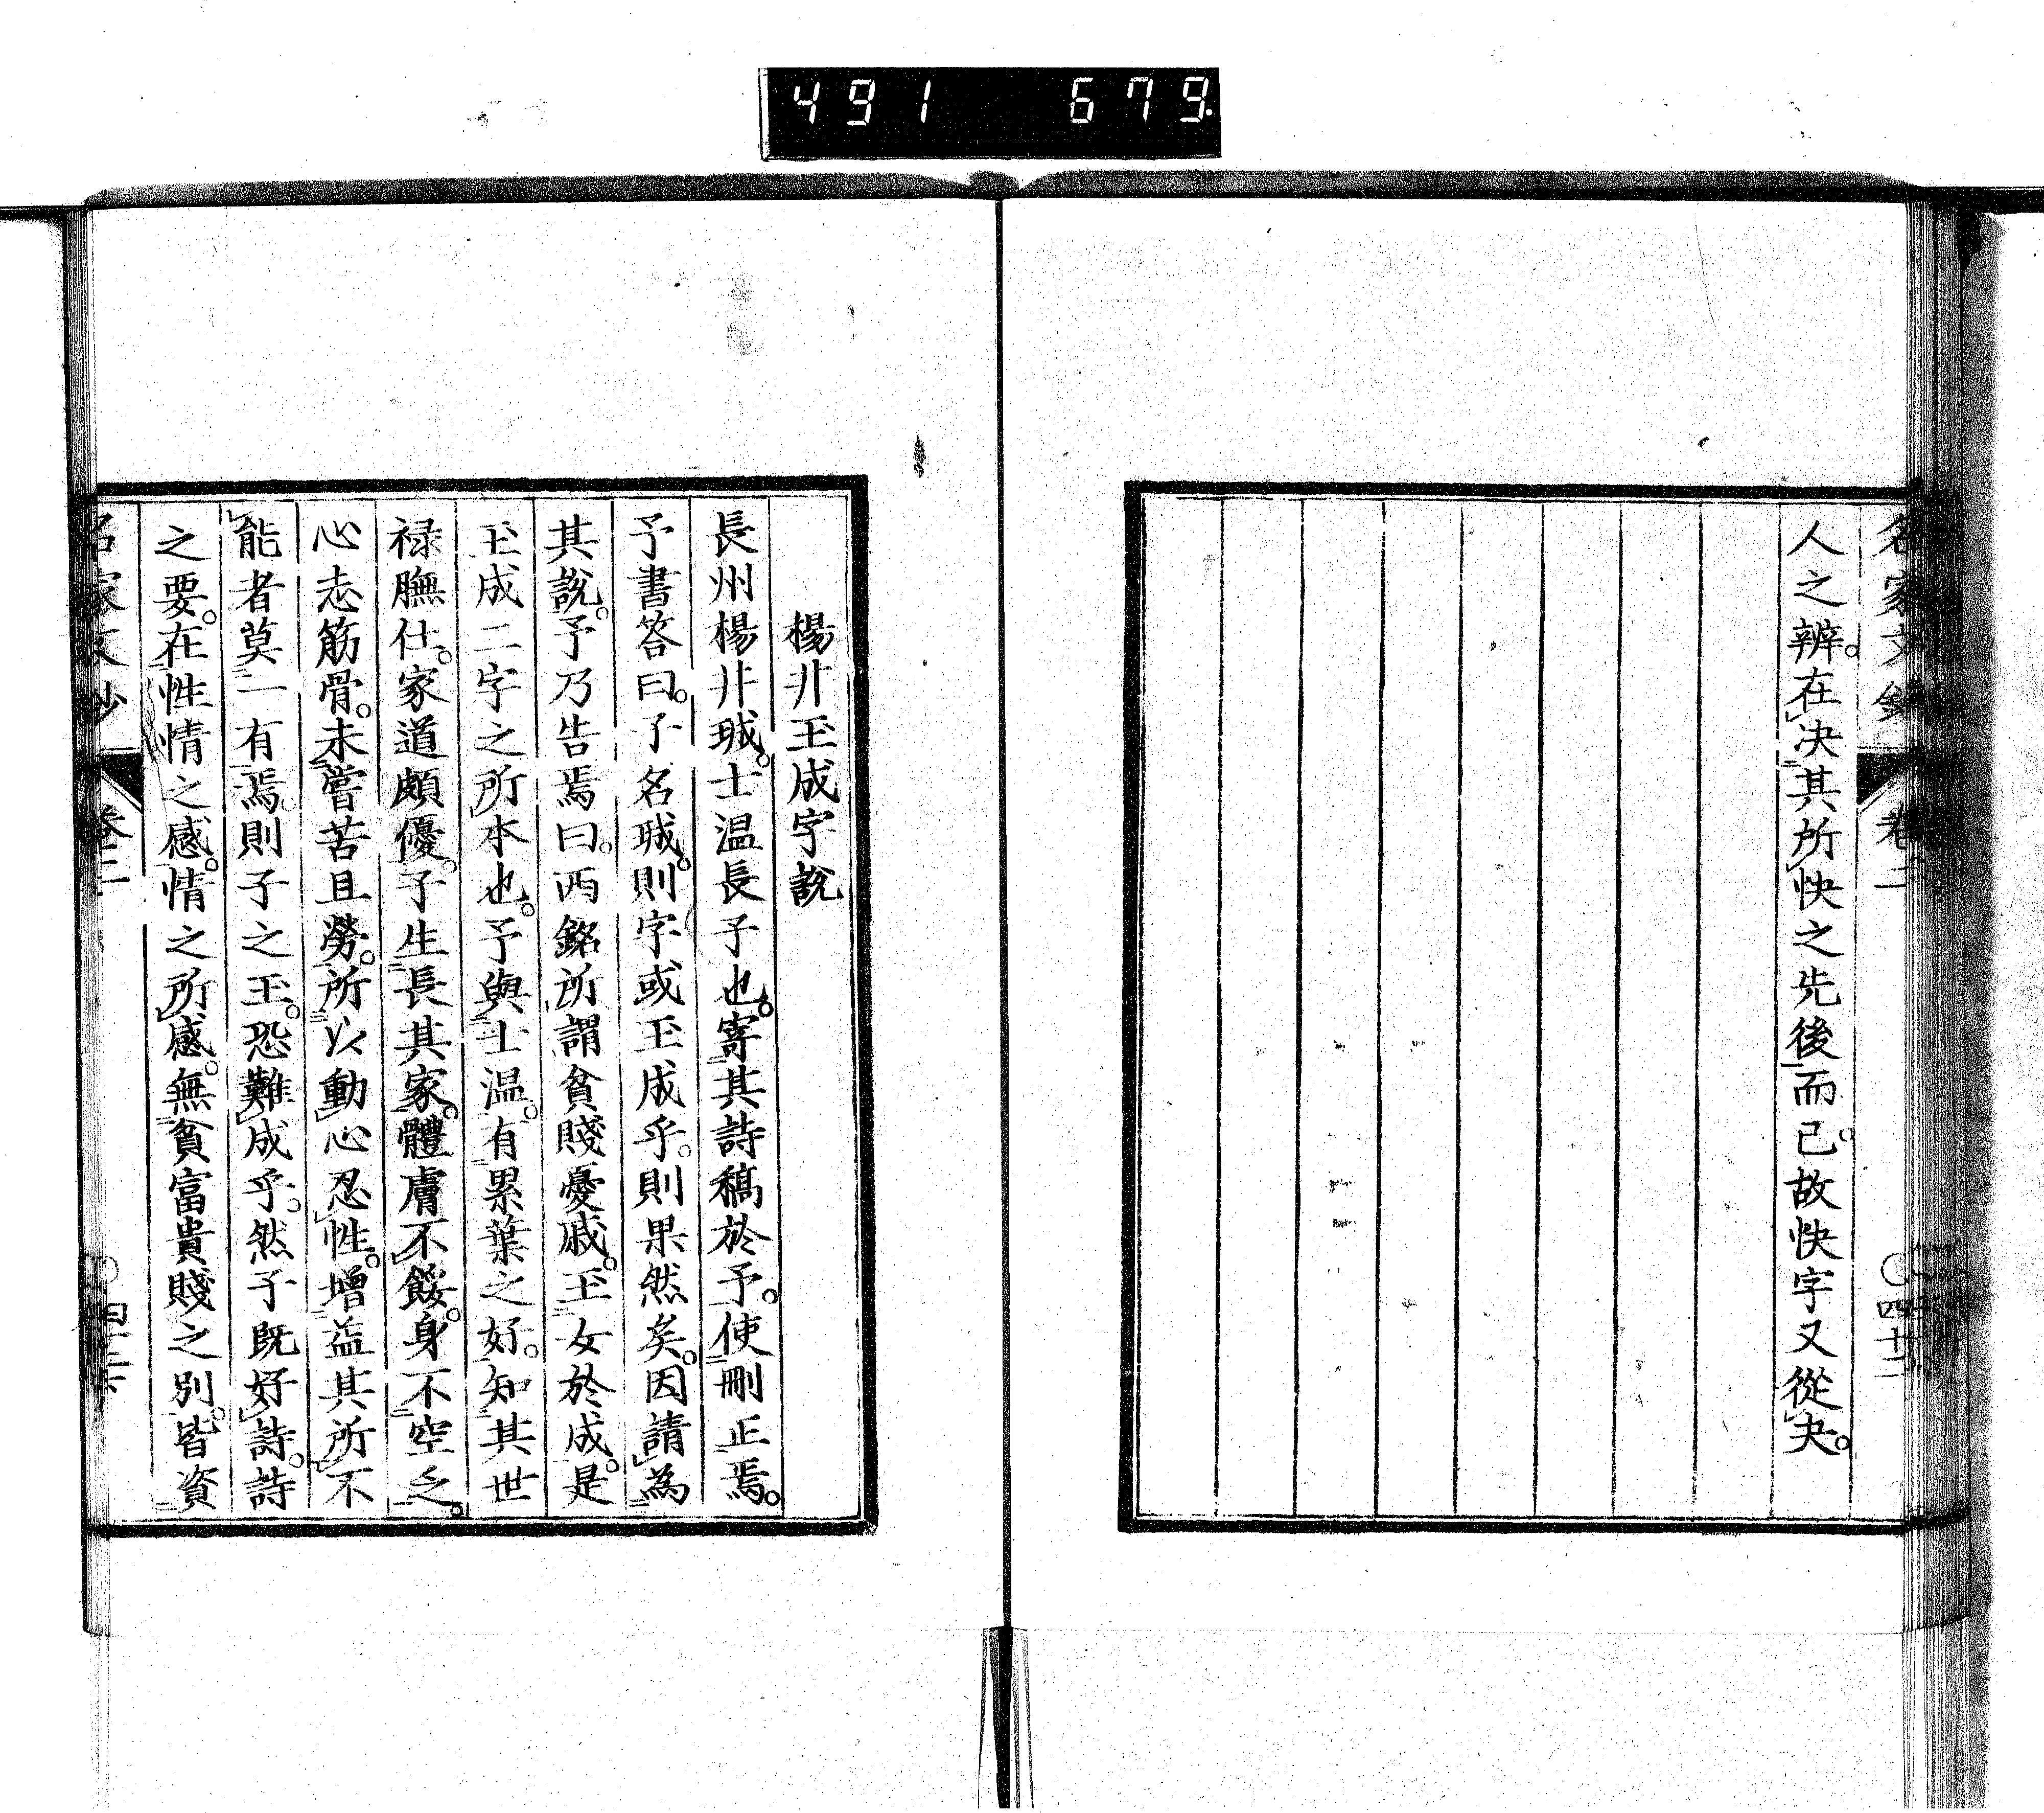 491 679.
名家文鈔 卷二 ○四十二
人之辨。在決其所快之先後而已。故快字又從夬。
楊井玉成字說
長州楊井珹。士温長子也。寄其詩稿於予。使刪正焉。
予書答曰。子名珹。則字或玉成乎。則果然矣。因請為
其說。予乃告焉曰。西銘所謂貧賤憂戚。玉女於成。是
玉成二字之所本也。予與士温。有累葉之好。知其世
祿膴仕。家道頗優。子生長其家。體膚不餒。身不空乏。
心志筋骨。未嘗苦且勞。所以動心忍性。增益其所不
能者莫一有焉。則子之玉。恐難成乎。然子既好詩。詩
之要。在性情之感。情之所感。無貧富貴賤之別。皆資
名家文鈔 卷二